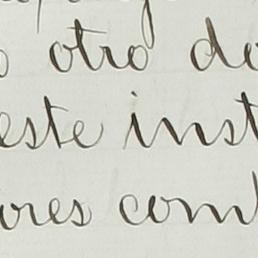 otro do
este inst
ores com